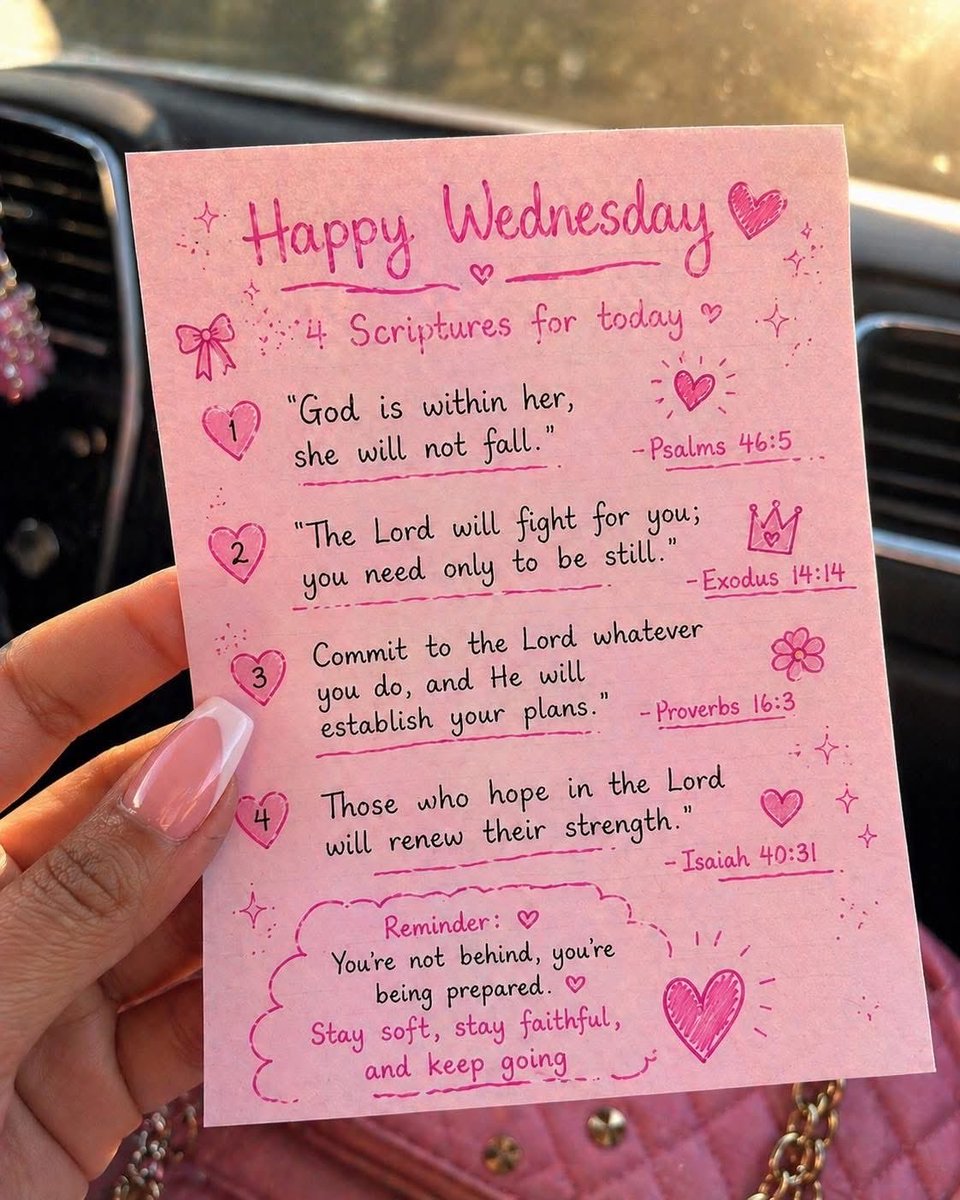 Happy Wednesday
4 Scriptures for today
1
"God is within her,
she will not fall."
-Psalms 46:5
2
"The Lord will fight for you;
you need only to be still."
-Exodus 14:14
3
Commit to the Lord whatever
you do, and He will
establish your plans."
-Proverbs 16:3
4
Those who hope in the Lord
will renew their strength."
-Isaiah 40:31
Reminder:
You're not behind, you're
being prepared.
Stay soft, stay faithful,
and keep going